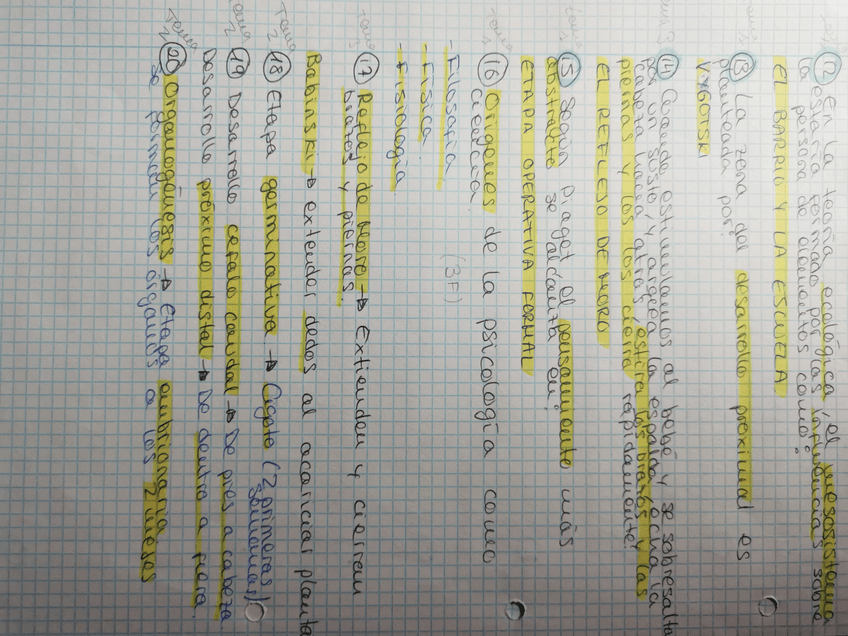 12 En la teoría ecológica, el mesosistema
estaría formado por las influencias sobre
la persona de elementos como?
EL BARRIO Y LA ESCUELA
13 La zona de desarrollo proximal es
planteada por:
VYGOTSKI
14 Cuando estimulamos al bebé y se sobresalta
por un susto, y arquea la espalda, echa la
cabeza hacia atrás, estira los brazos y las
piernas y los cierra rápidamente:
EL REFLESO DE MORO
15 Según Piaget el pensamiento más
abstracto se alcanza en:
ETAPA OPERATIVA FORMAL
16 Orígenes de la psicología como
ciencia
(3F)
- Filosofía
- Física
- Fisiología
17 Reflejo de Moro → Extienden y cierran
brazos y piernas.
Babinski → extender dedos al acariciar planta
Tema 2
18 Etapa germinativa → Cigoto (2 primeras
semanas)
Tema 2
19 Desarrollo cefalo caudal → De pies a cabeza
Desarrollo próximo distal → De dentro a fuera.
Tema 2
20 Organogénesis → Etapa embrionaria
se forman los órganos a los 2 meses